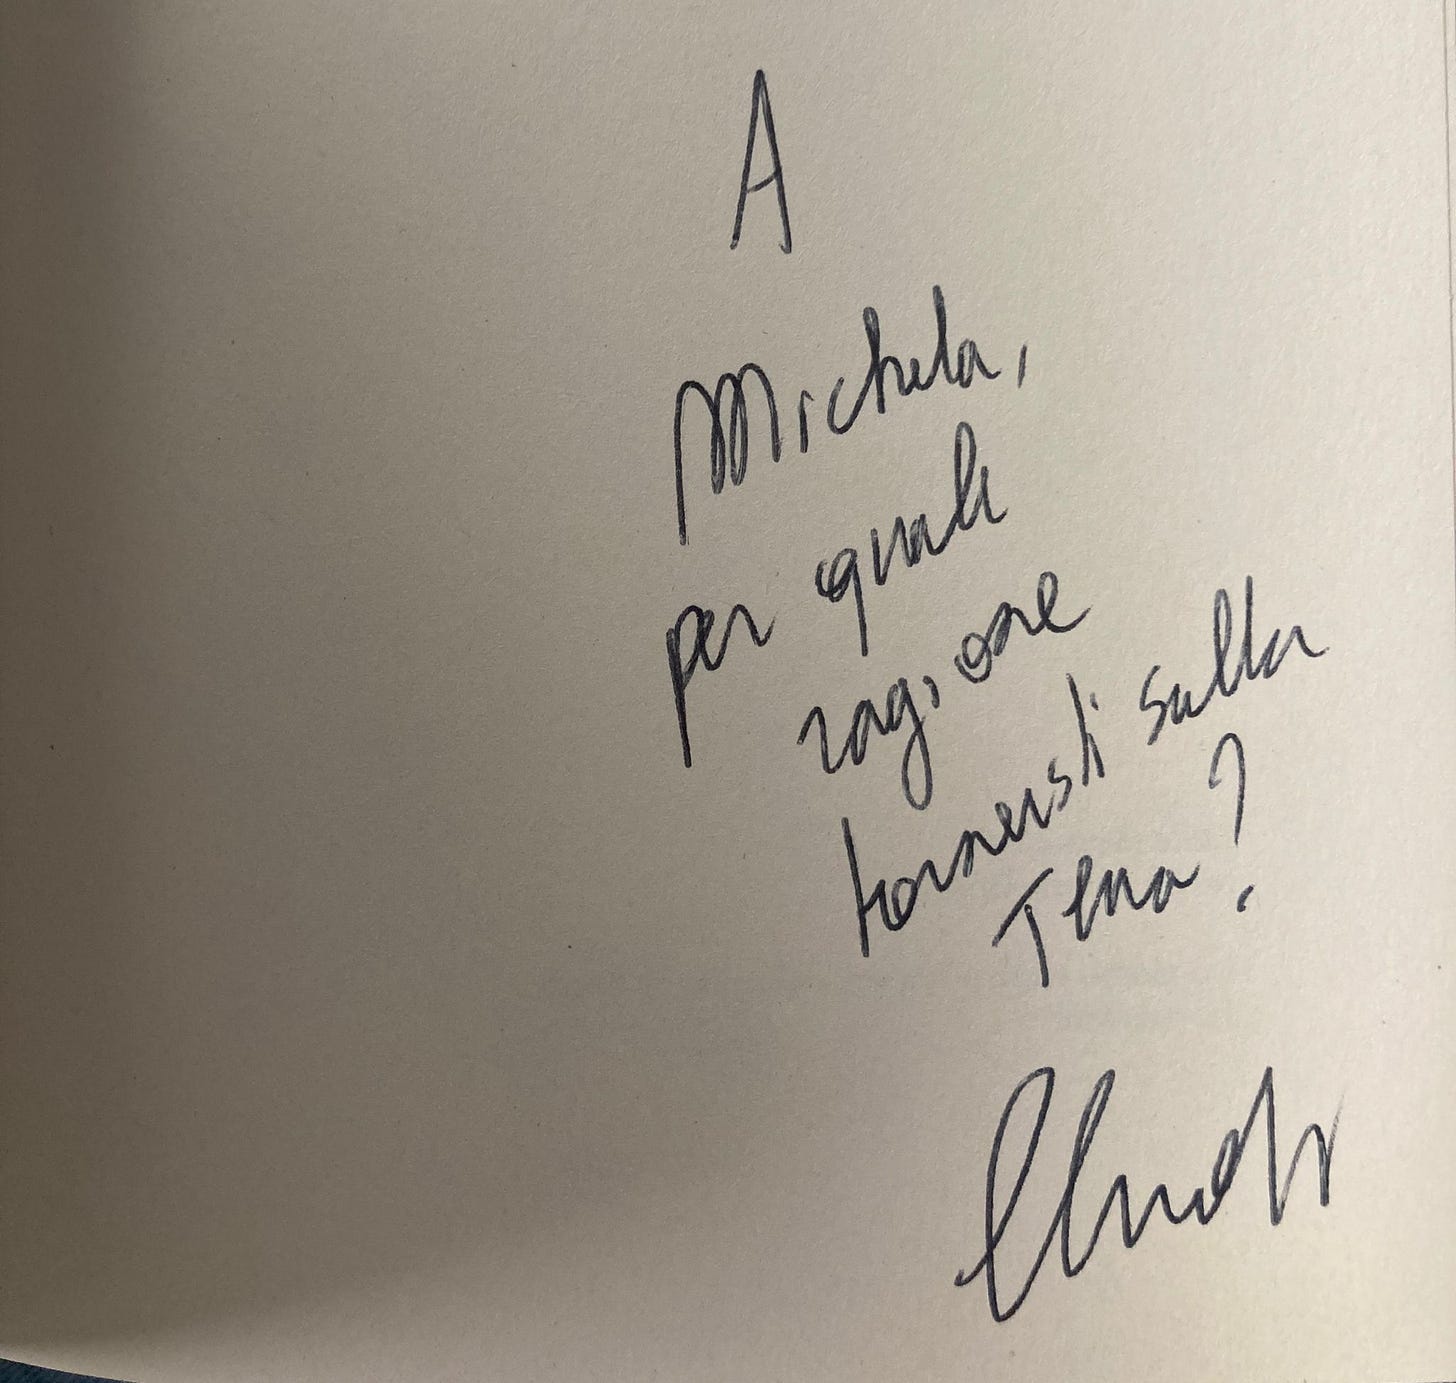 A
Michela,
per quale
ragione
torneresti sulla
Terra?